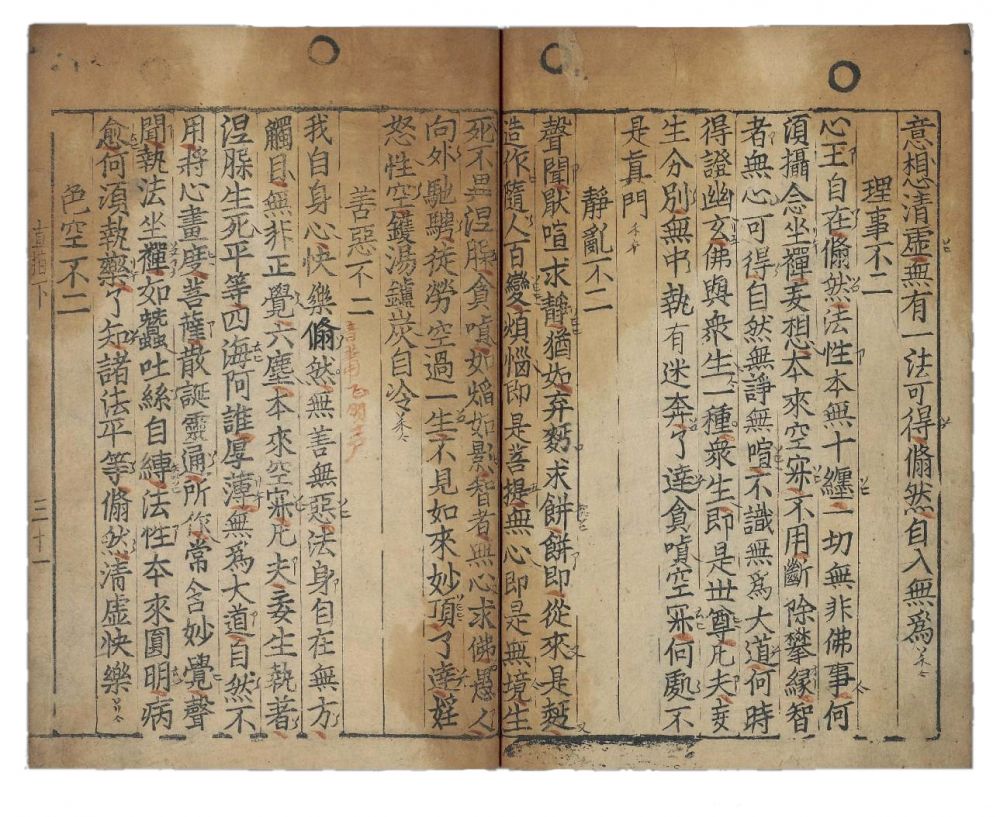 意想清虛無有一法可得翛然自入無爲
理事不二
心王自在翛然法性本無十纏一切無非佛事何
湏攝念坐禪妄想本來空㝝不用斷除攀緣智
者無心可得自然無諍無喧不識無爲大道何時
得證幽玄佛與衆生一種衆生即是世尊凡夫妄
生分別無中執有迷奔了達貪嗔空㝝何處不
是真門
靜亂不二
聲聞厭喧求靜猶如弃麪求餅餅即從來是麪
造作隨人百變煩惱即是菩提無心即是無境生
死不異涅槃貪嗔如焰如影智者無心求佛愚人
向外馳騁徒勞空過一生不見如來妙頂了達婬
怒性空鑊湯鑪炭自冷
善惡不二
我自身心快樂翛然無善無惡法身自在無方
觸目無非正覺六塵本來空㝝凡夫妄生執著
涅槃生死平等四海阿誰厚薄無爲大道自然不
用將心畫度菩薩散誕靈通所作常含妙覺聲
聞執法坐禪如蠶吐絲自縛法性本來圓明病
愈何湏執藥了知諸法平等翛然清虛快樂
色空不二
直指下
三十一